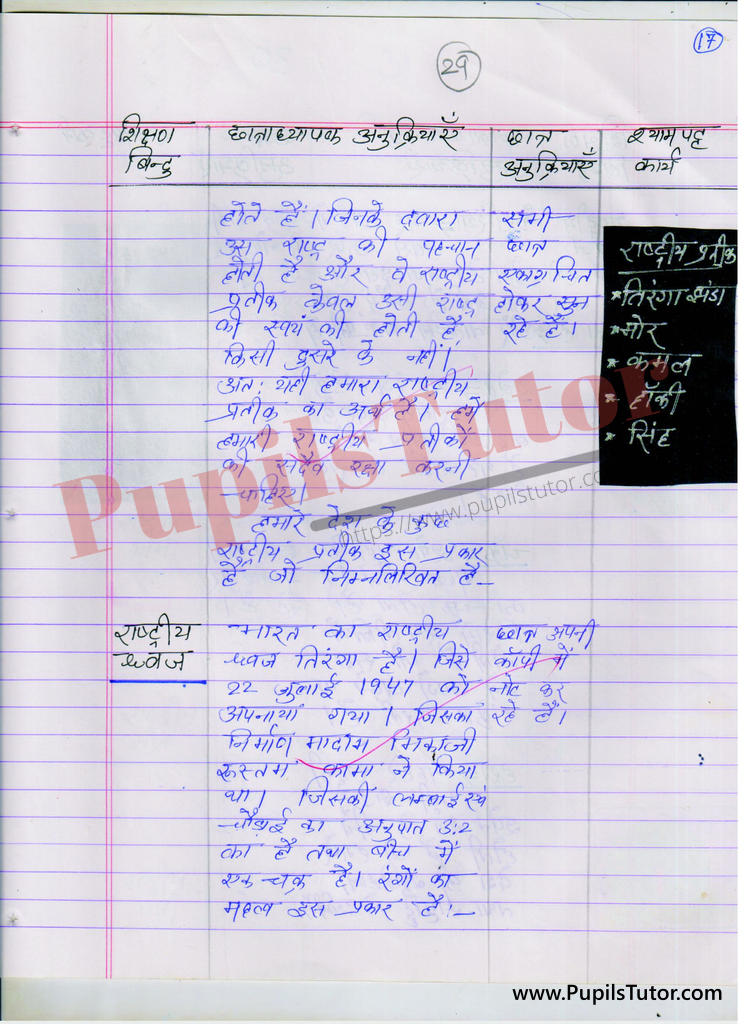 17
29
शिक्षण बिन्दु
छात्राध्यापक अनुक्रियाएँ
छात्र अनुक्रियाएँ
श्यामपट्ट कार्य
होते हैं। जिनके द्वारा
उस राष्ट्र की पहचान
होती है और वे राष्ट्रीय
प्रतीक केवल उसी राष्ट्र
की स्वयं की होती है
किसी दुसरे के नहीं।
अतः यही हमारा राष्ट्रीय
प्रतीक का अर्थ है। हमें
हमारी राष्ट्रीय प्रतीकों
की सदैव रक्षा करनी
चाहिए।
हमारे देश के कुछ
राष्ट्रीय प्रतीक इस प्रकार
है जो निम्नलिखित है-
सभी
छात्र
एकाग्रचित
होकर सुन
रहे हैं।
राष्ट्रीय प्रतीक
* तिरंगा झंडा
* मोर
* कमल
* हॉकी
* सिंह
राष्ट्रीय
ध्वज
भारत का राष्ट्रीय
ध्वज तिरंगा है। जिसे
22 जुलाई 1947 को
अपनाया गया। जिसका
निर्माण मादाम भिकाजी
रूस्तम कामा ने किया
था। जिसकी लम्बाई एवं
चौड़ाई का अनुपात 3:2
का है तथा बीच में
एक चक्र है। रंगों का
महत्व इस प्रकार है।-
छात्र अपनी
कॉपी में
नोट कर
रहे हैं।
PupilsTutor
https://www.pupilstutor.com
www.PupilsTutor.com